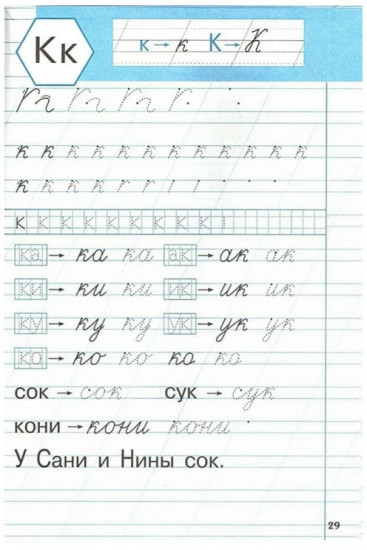 Кк
к → к К → К
к к к к к к к к к к к к
к к к к
к к к к к к к к к
ка → ка ка ак → ак ак
ки → ки ки ик → ик ик
ку → ку ку ук → ук ук
ко → ко ко ко ко
сок → сок сук → сук
кони → кони кони
У Сани и Нины сок.
29